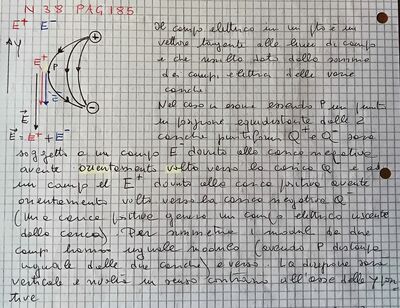 N 38 PAG 185
E⁺ E⁻
Y
P
E⁺
E⁻
E = E⁺ + E⁻
+
−
Il campo elettrico in un pto è un
vettore tangente alle linee di campo
e che risulta dato dalla somma
dei campi elettrici delle varie
cariche.
Nel caso in esame essendo P un punto
in posizione equidistante dalle 2
cariche puntiformi Q⁺ e Q⁻ sarà
soggetto a un campo E⁻ dovuto alla carica negativa
avente orientamento volto verso la carica Q⁻ e ad
un campo el E⁺ dovuto alla carica positiva avente
orientamento volto verso la carica negativa Q⁻
(Una carica positiva genera un campo elettrico uscente
dalla carica) Per simmetria i due
campi hanno uguale modulo (essendo P distante
uguale dalle due cariche) e verso. La direzione sarà
verticale e rivolta in senso contrario all'asse delle Y posi
tive